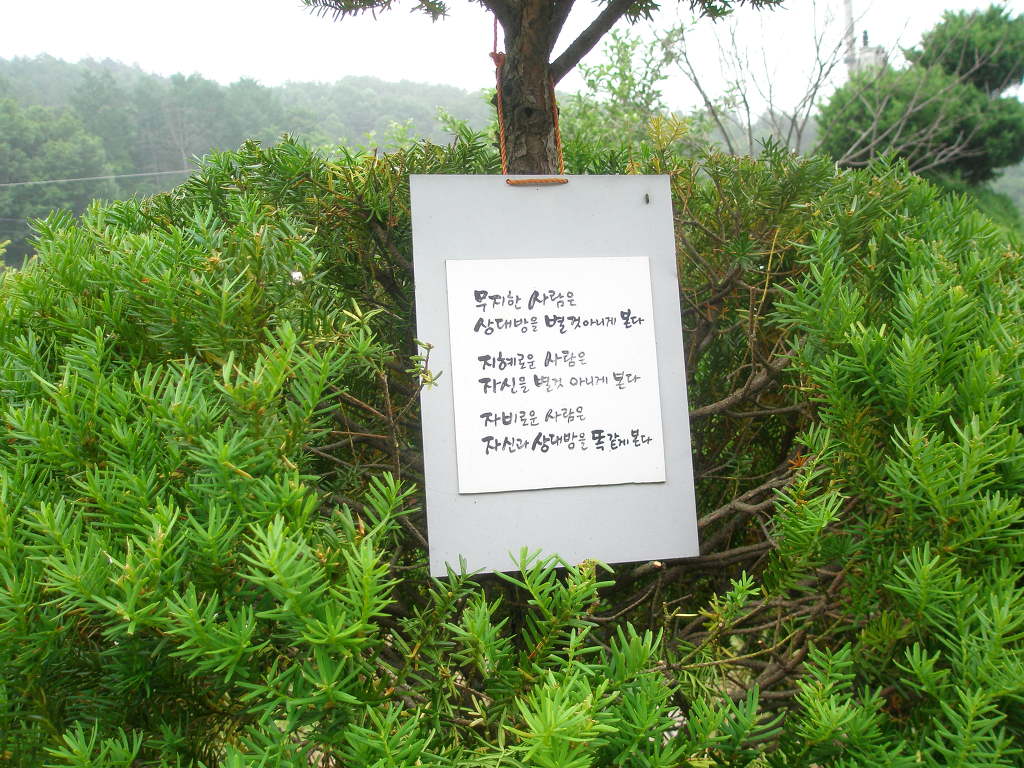 무지한 사람은
상대방을 별것아니게 본다
지혜로운 사람은
자신을 별것 아니게 본다
자비로운 사람은
자신과 상대방을 똑같게 본다